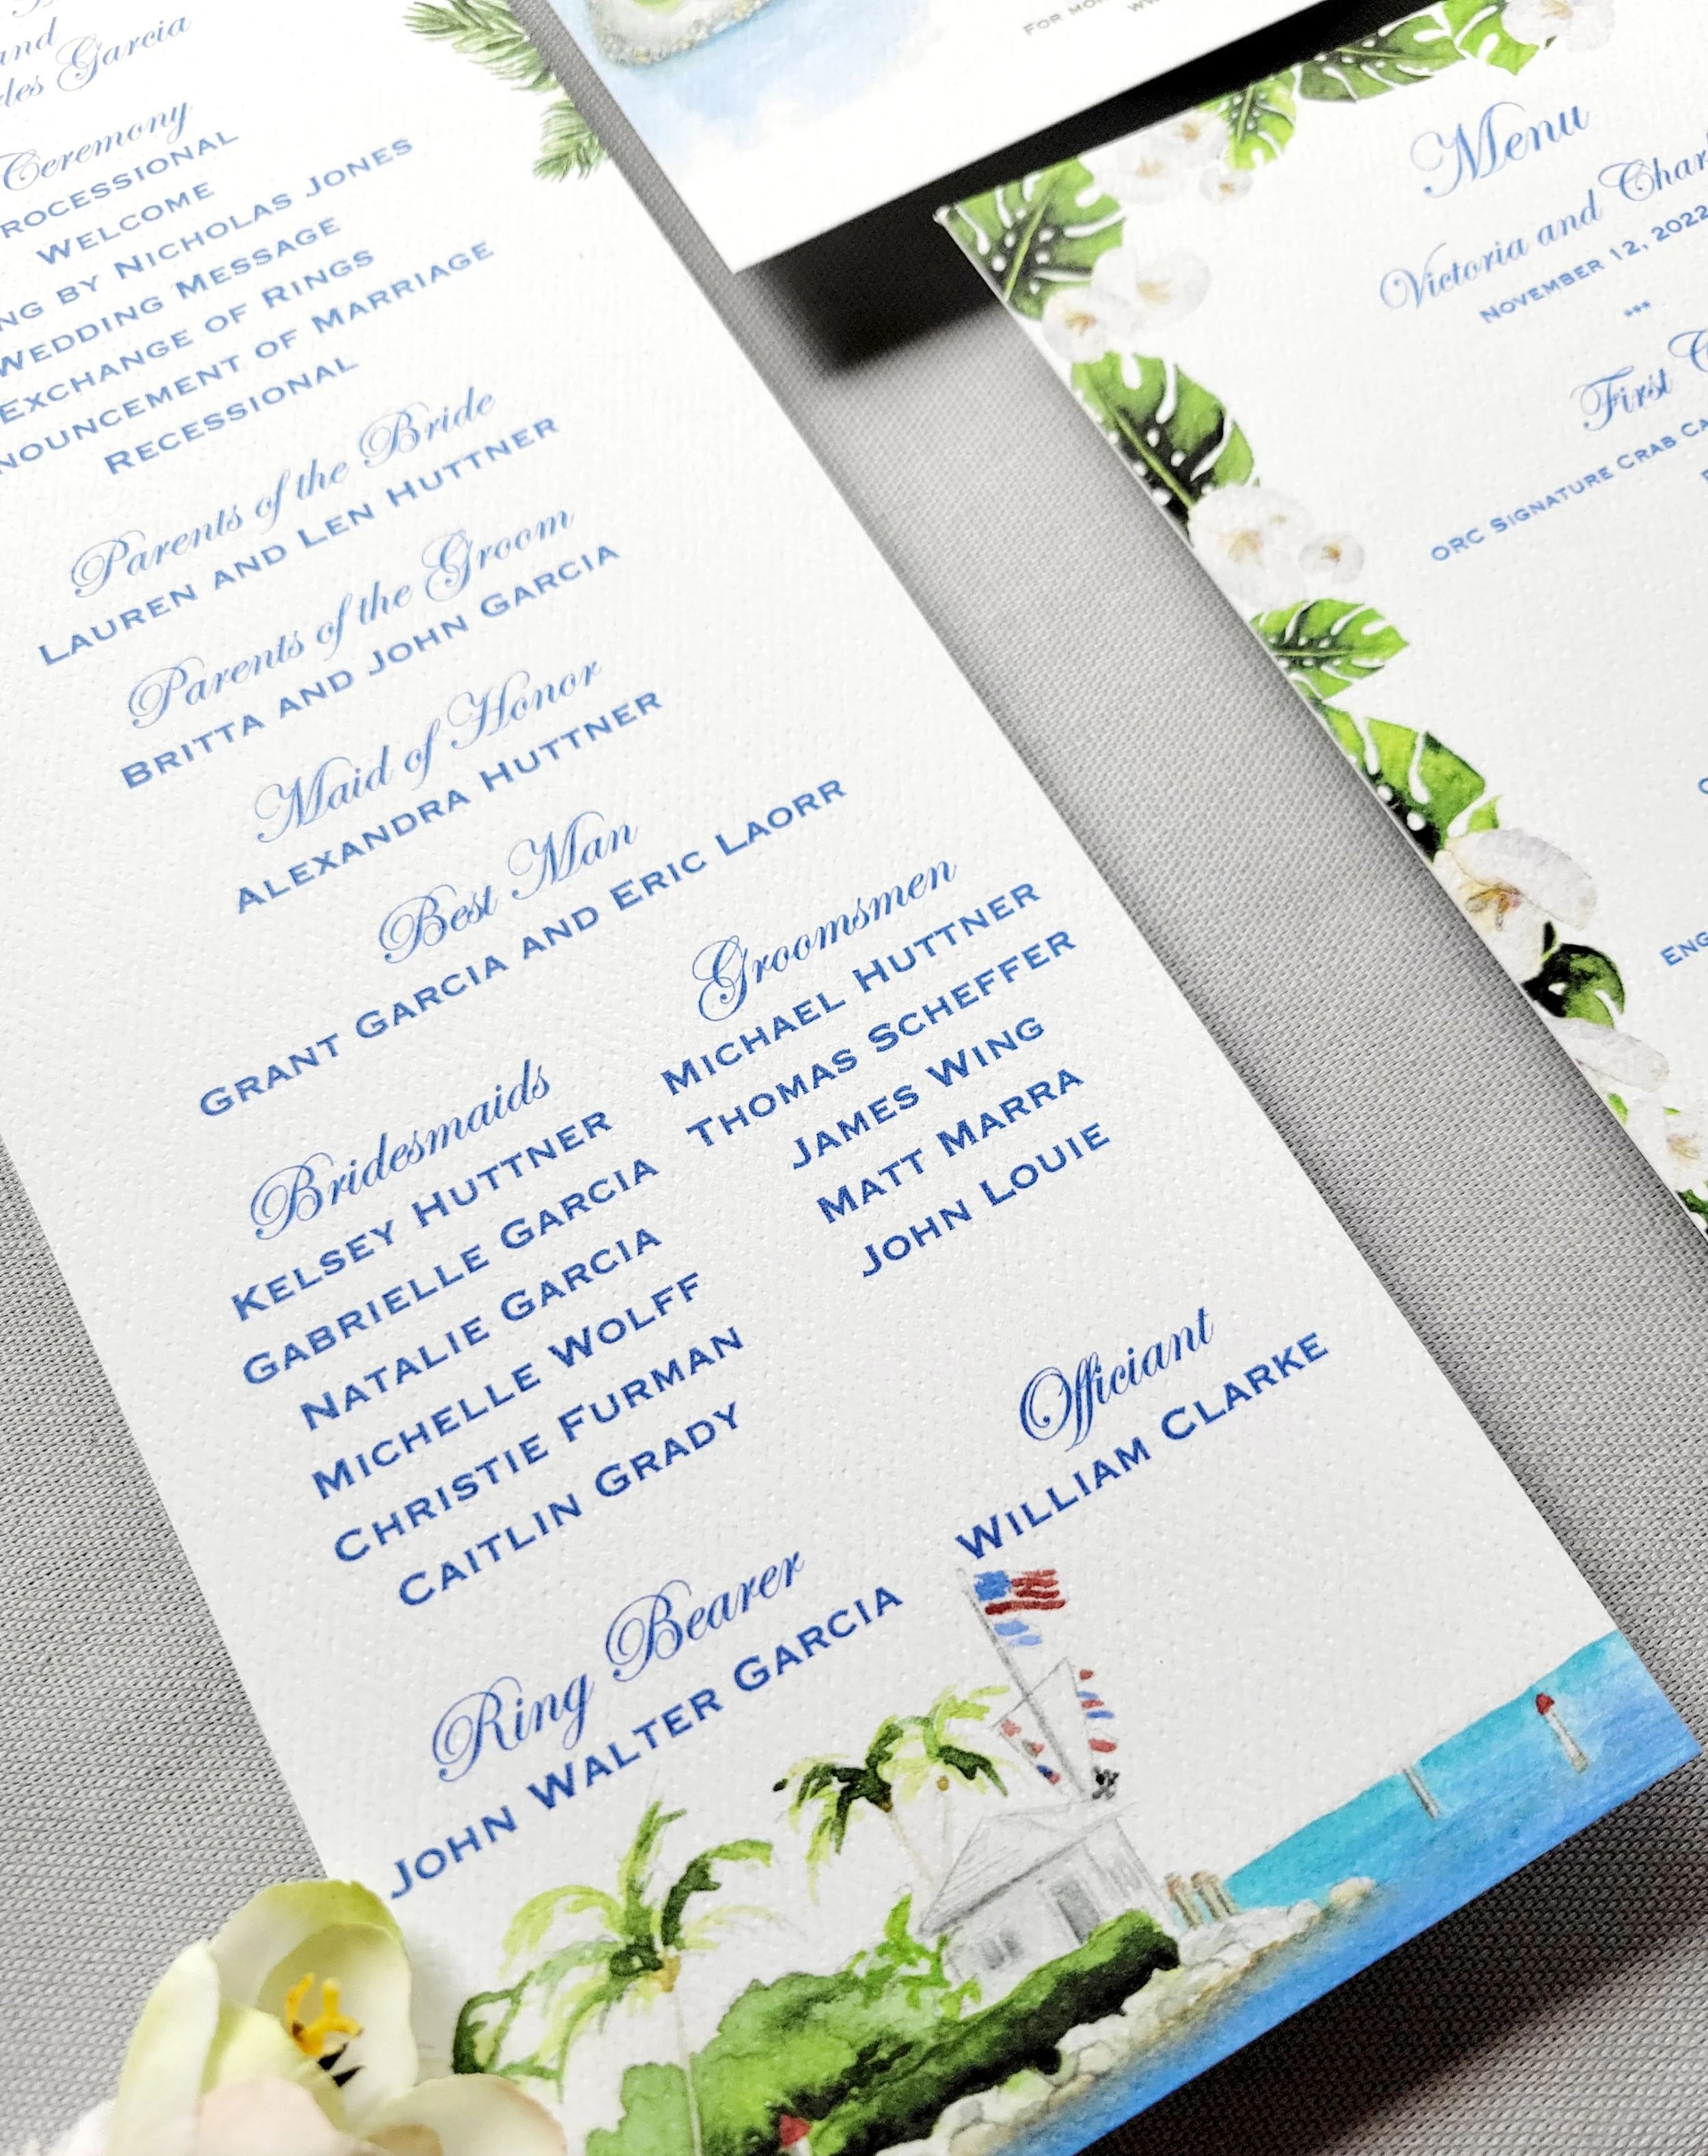 and
Garcia
Ceremony
WELCOME
BY NICHOLAS JONES
WEDDING MESSAGE
EXCHANGE OF RINGS
OF MARRIAGE
RECESSIONAL
Parents of the Bride
LAUREN AND LEN HUTTNER
Parents of the Groom
BRITTA AND JOHN GARCIA
Maid of Honor
ALEXANDRA HUTTNER
Best Man
GRANT GARCIA AND ERIC LAORR
Bridesmaids
KELSEY HUTTNER
GABRIELLE GARCIA
NATALIE GARCIA
MICHELLE WOLFF
CHRISTIE FURMAN
CAITLIN GRADY
Groomsmen
MICHAEL HUTTNER
THOMAS SCHEFFER
JAMES WING
MATT MARRA
JOHN LOUIE
Officiant
WILLIAM CLARKE
Ring Bearer
JOHN WALTER GARCIA
FOR
Menu
Victoria and Char
NOVEMBER 12, 2022
***
First
ORC SIGNATURE CRAB CA
ENG